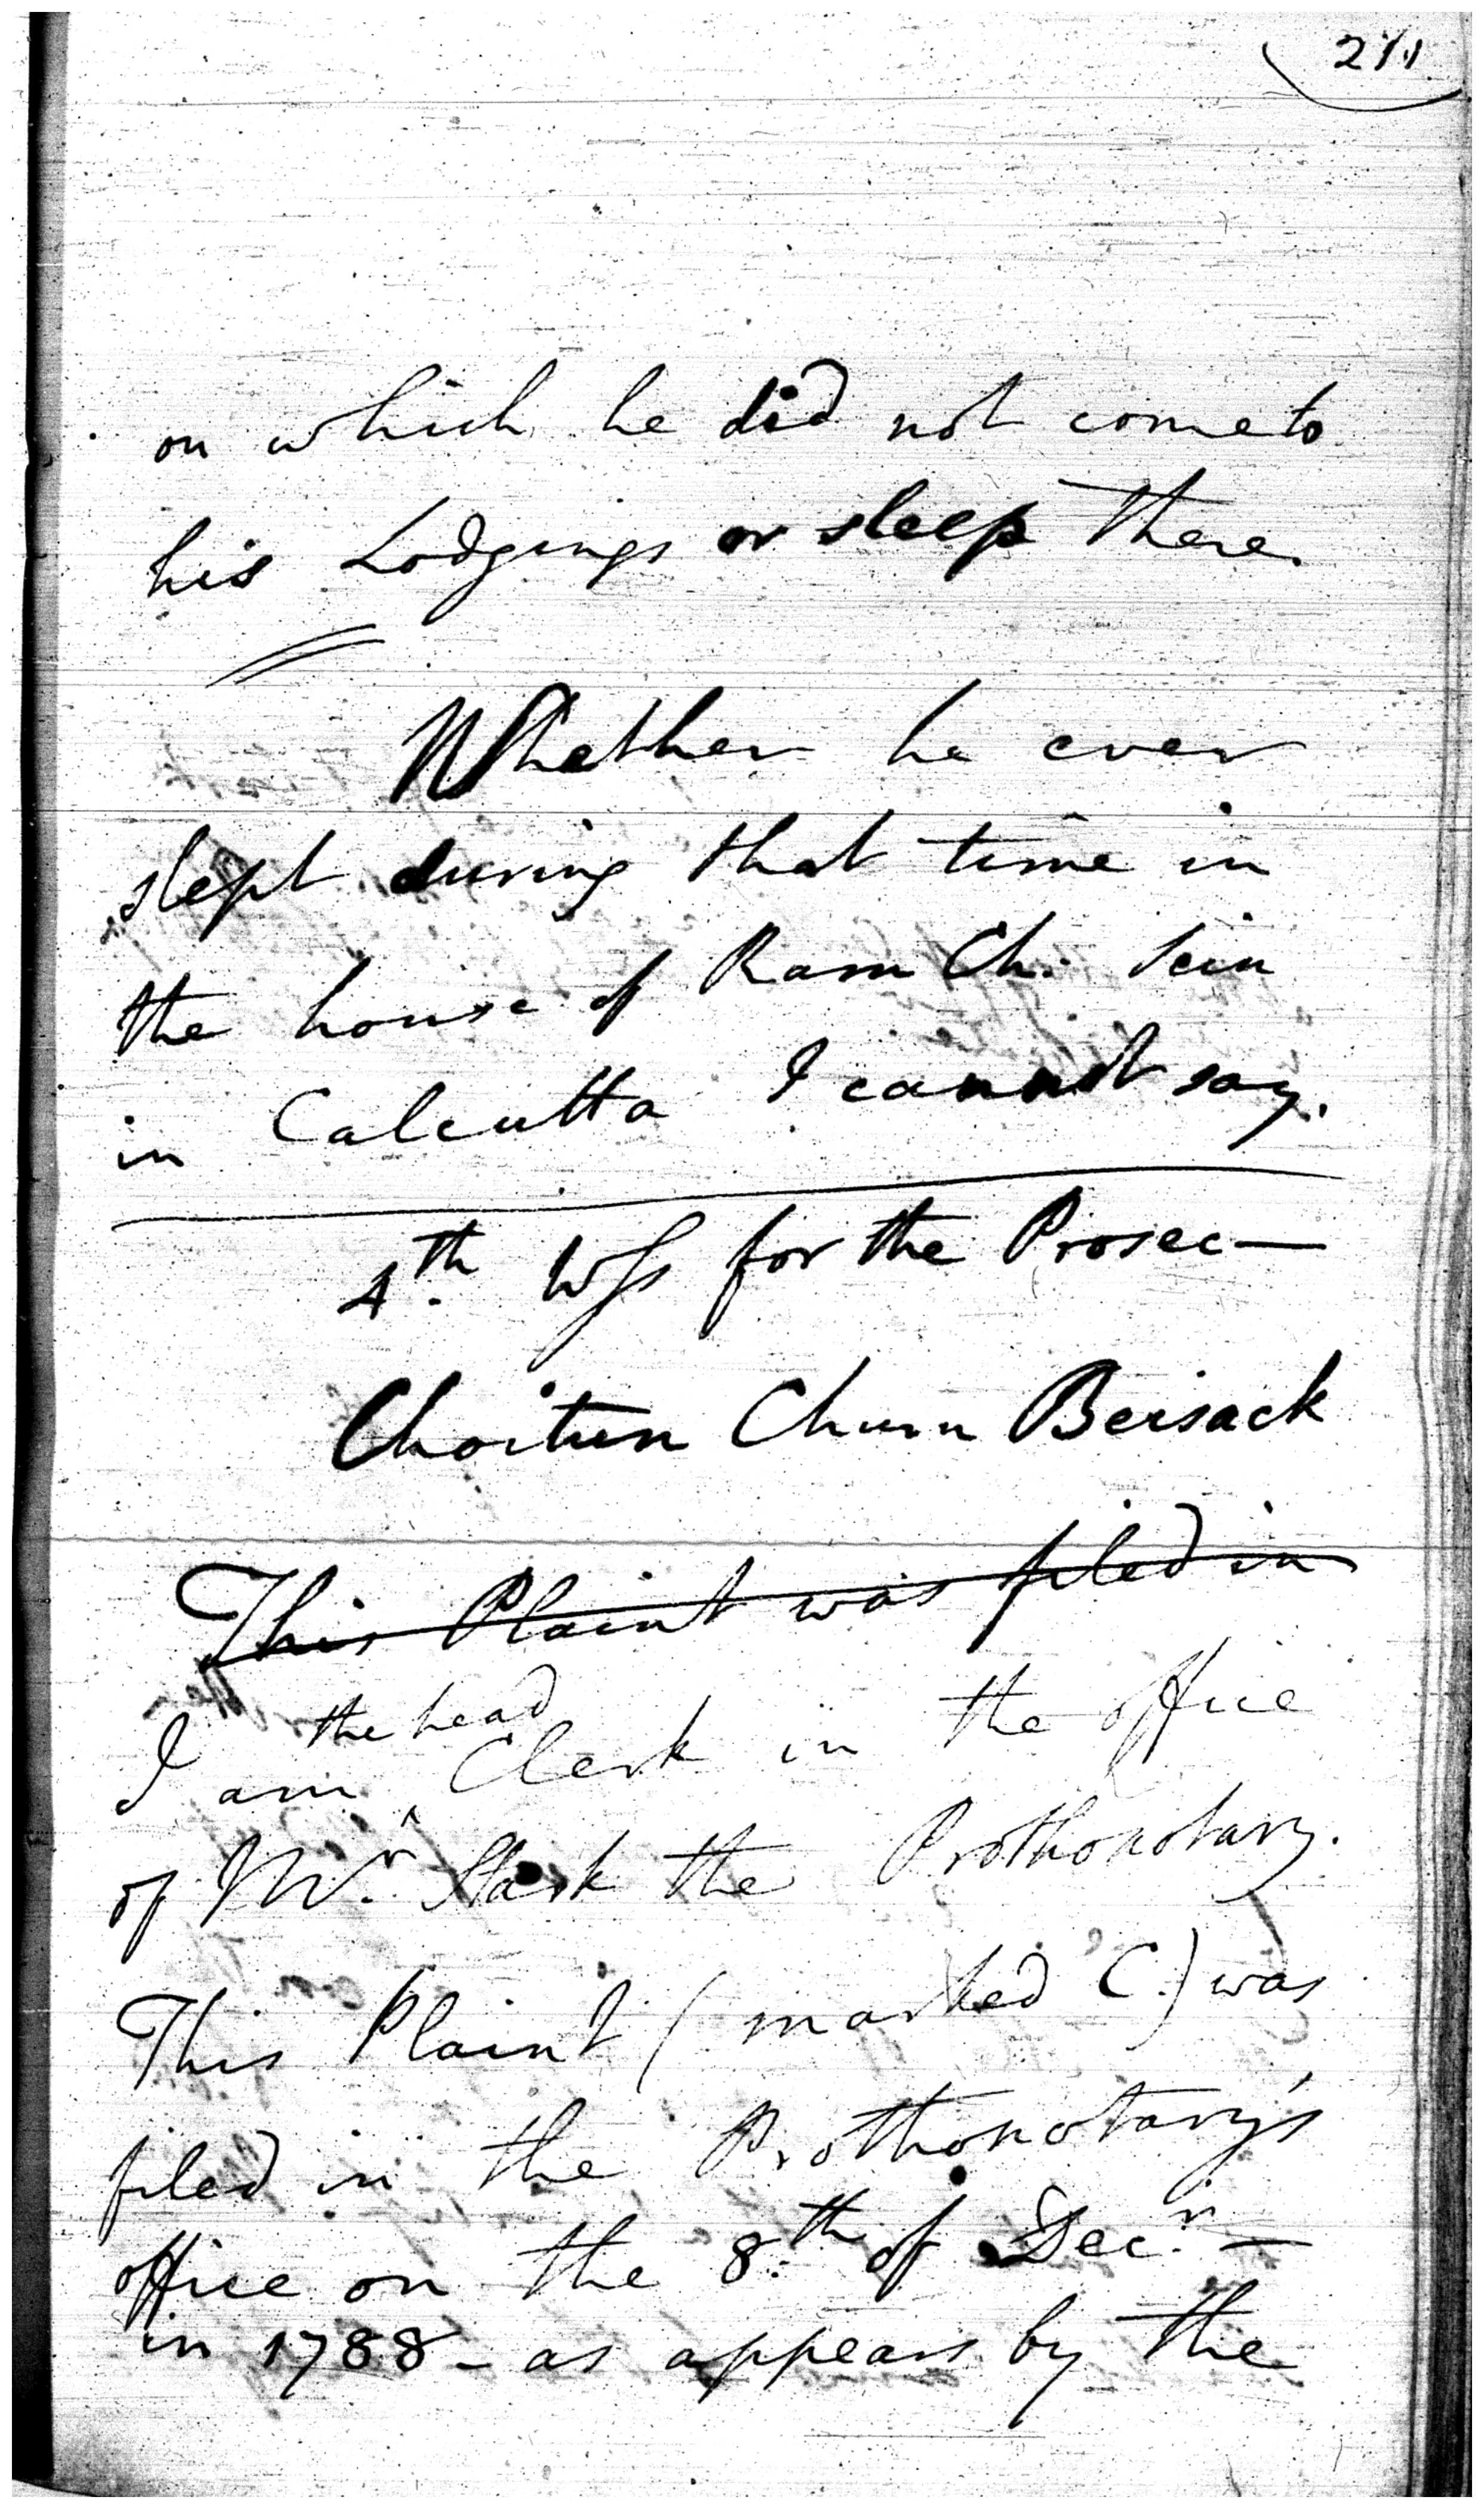 on which he did not come to
his Lodgings or sleep there.
Whether he ever
slept during that time in
the house of Ram Ch. Sein
in Calcutta I cannot say.
4th. Wss for the Prosec—
Choitun Churn Beisack
This Plaint was filed in
the head
I am ^ Clerk in the office
of Mr. Stark the Prothonotary.
This Plaint (marked C.) was
filed in the Prothonotary's
office on the 8th. of Decr. —
in 1788 - as appears by the